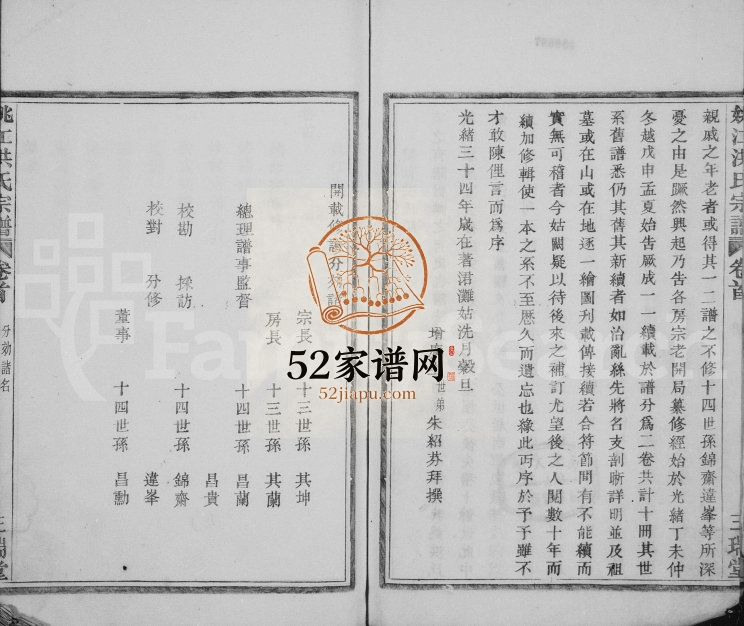 姚江洪氏宗譜 卷首 三瑞堂
親戚之年老者或得其一二譜之不修十四世孫錦齋達峯等所深
憂之由是蹶然興起乃告各房宗老開局纂修經始於光緒丁未仲
冬越戊申孟夏始告厥成一一續載於譜分爲二卷共計十冊其世
系舊譜悉仍其舊其新續者如治亂絲先將名支剖晰詳明並及祖
墓或在山或在地逐一繪圖刋載俾接續若合符節間有不能續而
實無可稽者今姑闕疑以待後來之補訂尤望後之人閱數十年而
續加修輯使一本之系不至歷久而遺忘也緣此丐序於予予雖不
才敢陳俚言而爲序
光緒三十四年歲在著涒灘姑洗月穀旦
世弟 朱紹芬拜撰
開載修譜分
宗長 十三世孫 其坤
房長 十三世孫 其蘭
總理譜事監督 十四世孫 昌蘭
昌貴
校勘 採訪 十四世孫 錦齋
校對 分修 達峯
董事 十四世孫 昌勳
姚江洪氏宗譜 卷首 分勷諸名 三瑞堂
52家谱网
52jiapu.com